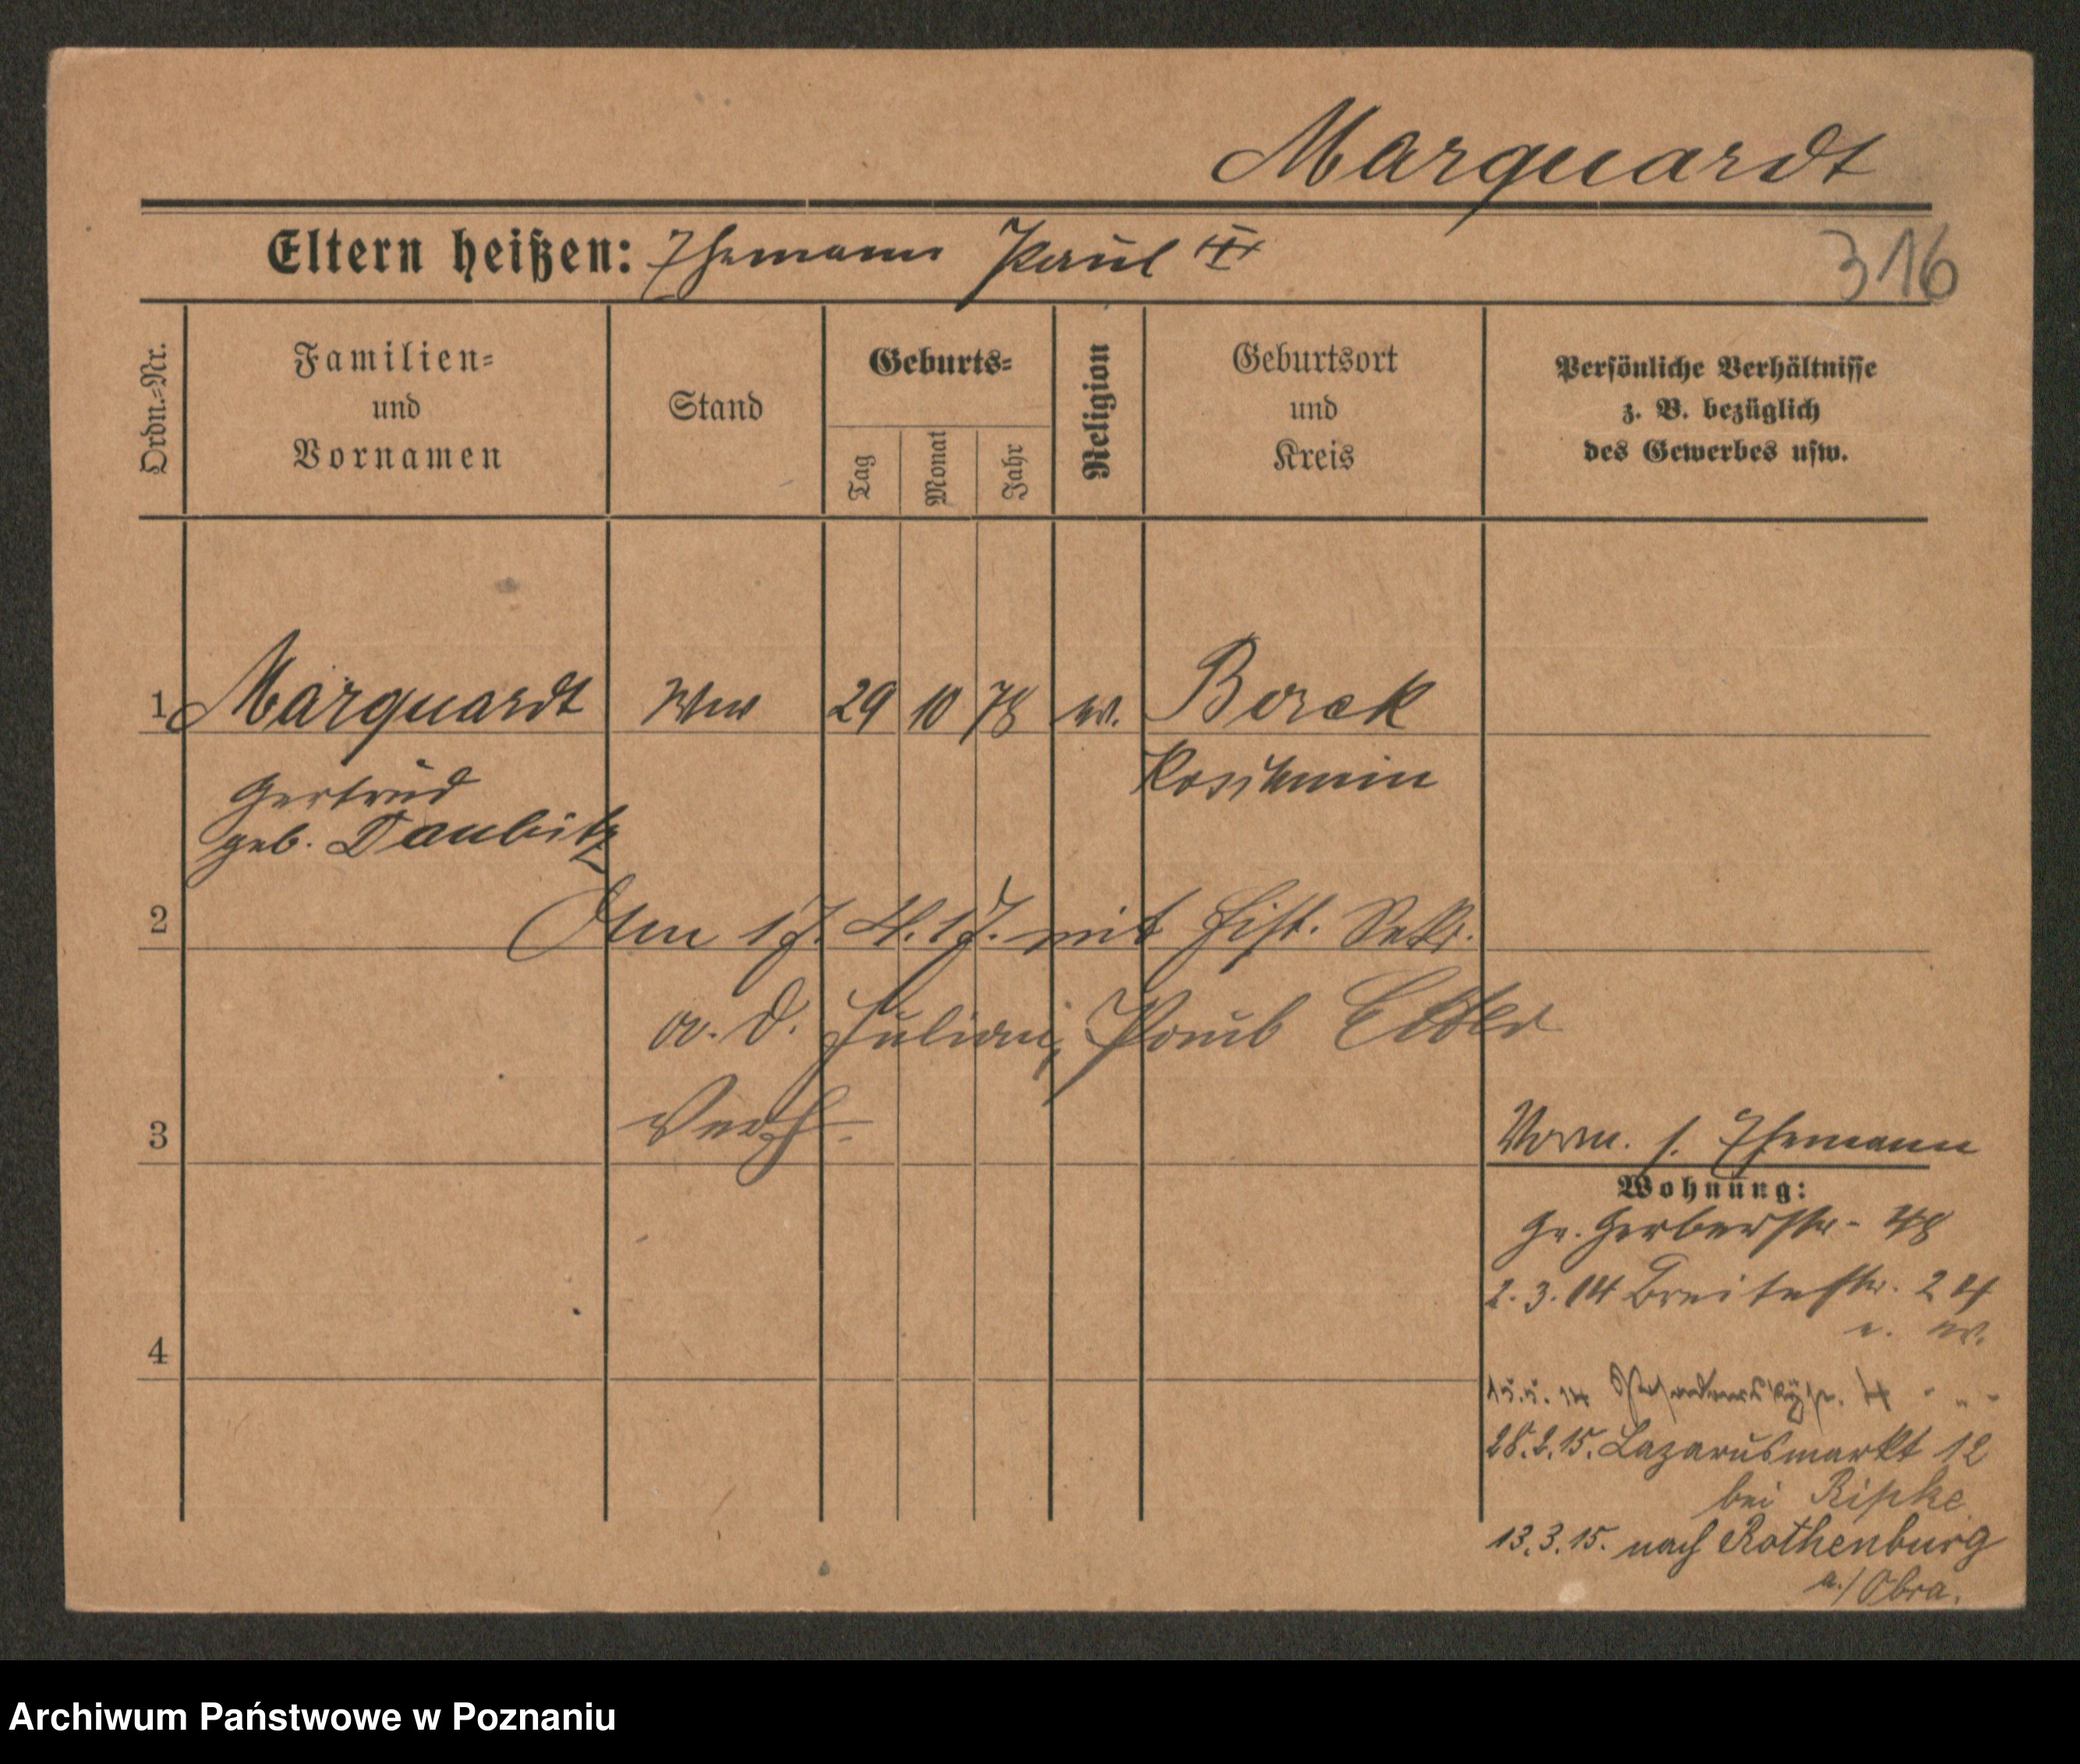 Marquardt
Eltern heißen: Ehemann Paul
316
Ordn.-Nr.
Familien-
und
Vornamen
Stand
Geburts-
Tag
Monat
Jahr
Religion
Geburtsort
und
Kreis
Persönliche Verhältnisse
z. B. bezüglich
des Gewerbes usw.
1 Marquardt Ww 29 10 78 ev. Borek
Koschmin
Gertrud
geb. Daubitz
2
Am 17. 4. 17. mit Just. Sekr.
a. D. Paul
3
Verh.
Vorm. s. Ehemann
Wohnung:
Gr. Gerberstr. 48
2. 3. 14 Breitestr. 24
4
15.5. 14 4 " " "
28.2.15. Lazarusmarkt 12
bei Ripke
13.3.15. nach Rothenburg
a./Obra.
Archiwum Państwowe w Poznaniu